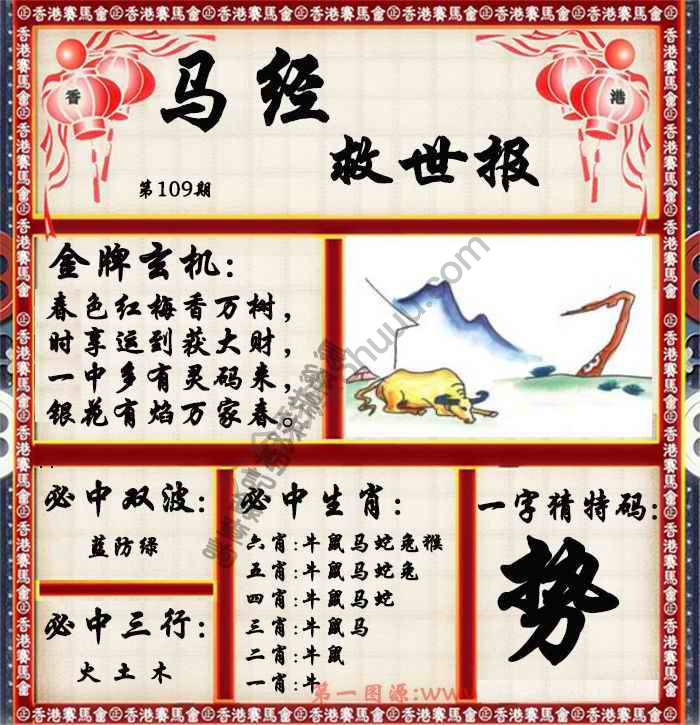 香港賽馬會
香 港
马经
救世报
第109期
金牌玄机:
春色红梅香万树，
时享运到获大财，
一中多有灵码来，
银花有焰万家春。
必中双波:
蓝防绿
必中三行:
火土木
必中生肖:
六肖:牛鼠马蛇兔猴
五肖:牛鼠马蛇兔
四肖:牛鼠马蛇
三肖:牛鼠马
二肖:牛鼠
一肖:牛
一字猜特码:
势
第一图源:www